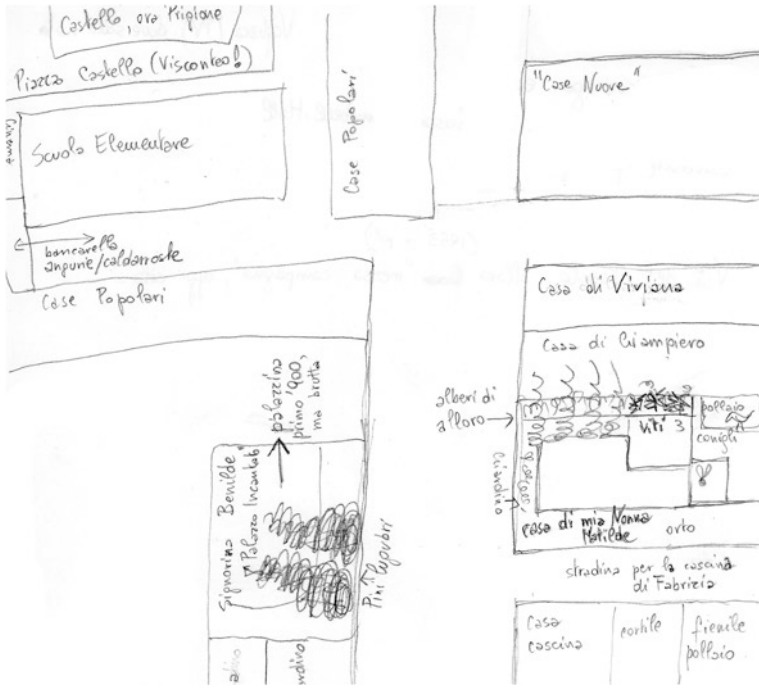 Castello, ora Prigione
Piazza Castello (Visconteo!)
Cinema
Scuola Elementare
bancarella
angurie/caldarroste
Case Popolari
Case Popolari
"Case Nuove"
Casa di Viviana
Casa di Giampiero
alberi di
alloro
viti
pollaio
conigli
Giardino
casa di mia Nonna
Matilde
orto
stradina per la cascina
di Fabrizia
Casa
cascina
cortile
fienile
pollaio
palazzina
primo '900,
ma brutta
Signorina Benilde
Palazzo Incantato
Pini lugubri